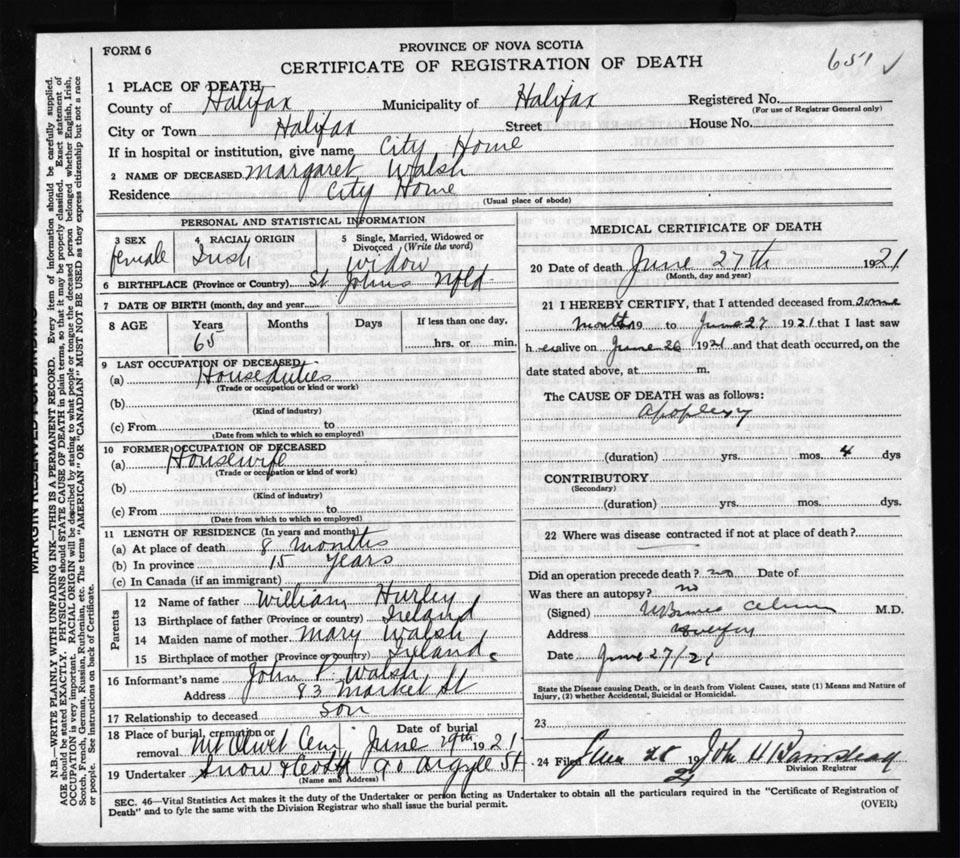 FORM 6
PROVINCE OF NOVA SCOTIA
CERTIFICATE OF REGISTRATION OF DEATH
651 ✓
1 PLACE OF DEATH
County of Halifax Municipality of Halifax Registered No.
(For use of Registrar General only)
City or Town Halifax Street House No.
If in hospital or institution, give name City Home
2 NAME OF DECEASED Margaret Walsh
Residence City Home
(Usual place of abode)
PERSONAL AND STATISTICAL INFORMATION
3 SEX 4 RACIAL ORIGIN 5 Single, Married, Widowed or Divorced (Write the word)
female Irish Widow
6 BIRTHPLACE (Province or Country) St Johns Nfld
7 DATE OF BIRTH (month, day and year)
8 AGE Years Months Days If less than one day,
65 hrs. or min.
9 LAST OCCUPATION OF DECEASED
(a) House duties
(Trade or occupation or kind or work)
(b)
(Kind of industry)
(c) From to
(Date from which to which so employed)
10 FORMER OCCUPATION OF DECEASED
(a) Housewife
(Trade or occupation or kind of work)
(b)
(Kind of industry)
(c) From to
(Date from which to which so employed)
11 LENGTH OF RESIDENCE (In years and months)
(a) At place of death 8 months
(b) In province 15 years
(c) In Canada (if an immigrant)
Parents
12 Name of father William Hurley
13 Birthplace of father (Province or country) Ireland
14 Maiden name of mother Mary Walsh
15 Birthplace of mother (Province or country) Ireland
16 Informant's name John P. Walsh
Address 83 Market St
17 Relationship to deceased Son
18 Place of burial, cremation or removal Mt Olivet Cem Date of burial June 29th 1921
19 Undertaker Snow & 90 Argyle St
(Name and Address)
MEDICAL CERTIFICATE OF DEATH
20 Date of death June 27th 1921
(Month, day and year)
21 I HEREBY CERTIFY, that I attended deceased from some
months 19 to June 27 1921 that I last saw
h er alive on June 26 1921 and that death occurred, on the
date stated above, at m.
The CAUSE OF DEATH was as follows:
apoplexy
(duration) yrs. mos. 4 dys
CONTRIBUTORY
(Secondary)
(duration) yrs. mos. dys.
22 Where was disease contracted if not at place of death?
Did an operation precede death? no Date of
Was there an autopsy? no
(Signed) M.D.
Address
Date June 27/21
State the Disease causing Death, or in death from Violent Causes, state (1) Means and Nature of
Injury, (2) whether Accidental, Suicidal or Homicidal.
23
24 Filed June 28 1921 John H
Division Registrar
SEC. 46—Vital Statistics Act makes it the duty of the Undertaker or person acting as Undertaker to obtain all the particulars required in the "Certificate of Registration of
Death" and to fyle the same with the Division Registrar who shall issue the burial permit.
(OVER)
MARGIN RESERVED FOR BINDING
N.B.—WRITE PLAINLY WITH UNFADING INK—THIS IS A PERMANENT RECORD. Every item of information should be carefully supplied.
AGE should be stated EXACTLY. PHYSICIANS should STATE CAUSE OF DEATH in plain terms, so that it may be properly classified. Exact statement of
OCCUPATION is very important. RACIAL ORIGIN will be described by stating to what people or tongue the deceased person belonged whether English, Irish,
Scotch, French, German, Russian, Ruthenian, etc. The terms "AMERICAN" OR "CANADIAN" MUST NOT BE USED as they express citizenship but not a race
or people. See instructions on back of Certificate.